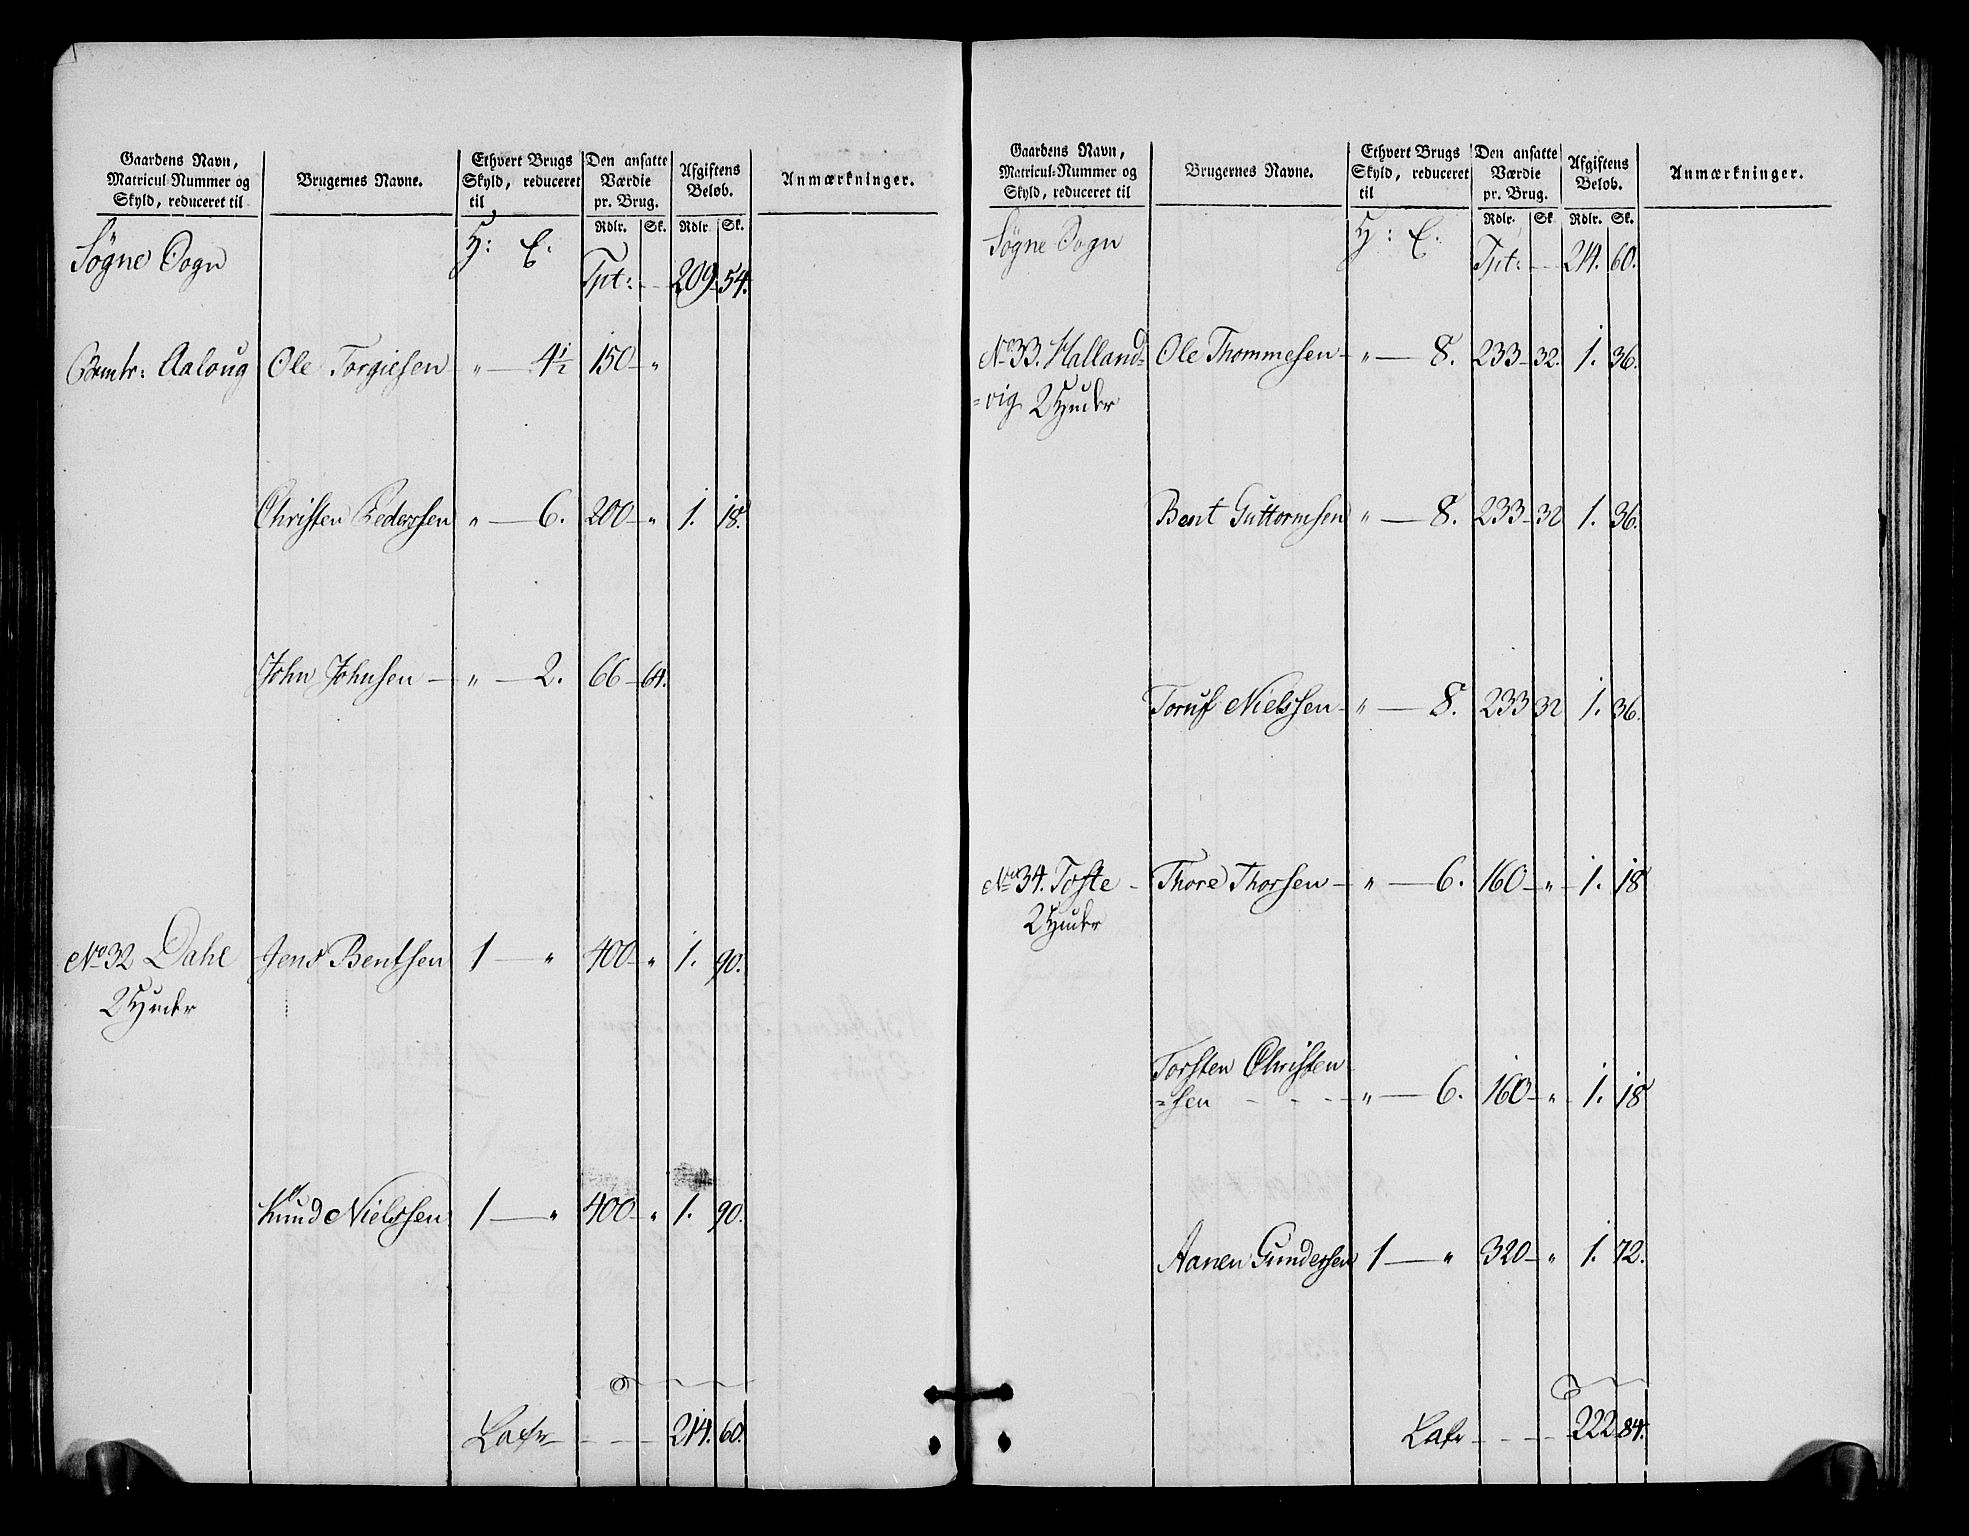 Gaardens Navn, Matricul-Nummer og Skyld, reduceret til
Brugernes Navne.
Ethvert Brugs Skyld, reduceret til
Den ansatte Værdie pr. Brug.
Afgiftens Beløb.
Anmærkninger.
Rdlr. Sk. Rdlr. Sk.
Søgne Sogn H: E:
Tpt: - - 209 54.
Aaloug Ole Torgiesen " — 4½ 150 - "
Christen Pederssen " — 6. 200 - " 1. 18.
John Johnsen — " — 2. 66 - 64.
No 32 Dahl Jens Bentsen 1 — " 400 - " 1. 90.
2 Huder
Knud Nielssen 1 — " 400 - " 1. 90.
Latr - - - 214. 60.
Gaardens Navn, Matricul-Nummer og Skyld, reduceret til
Brugernes Navne.
Ethvert Brugs Skyld, reduceret til
Den ansatte Værdie pr. Brug.
Afgiftens Beløb.
Anmærkninger.
Rdlr. Sk. Rdlr. Sk.
Søgne Sogn H: E:
Tpt: - - 214. 60.
No 33. Halland= Ole Thommesen - " — 8. 233 - 32. 1. 36.
=vig 2 Huder
Bent Guttormsen " — 8. 233 - 32 1. 36.
Toruf Nielssen - " — 8. 233 32 1. 36.
No 34. Tofte - Thore Thorsen - " — 6. 160 - " - 1. 18
2 Huder
Torsten Christen
=sen - - - " — 6. 160 - " - 1. 18
Aanen Gunderssen 1 — " 320 - " 1. 72.
Latr - - - - 222 84.